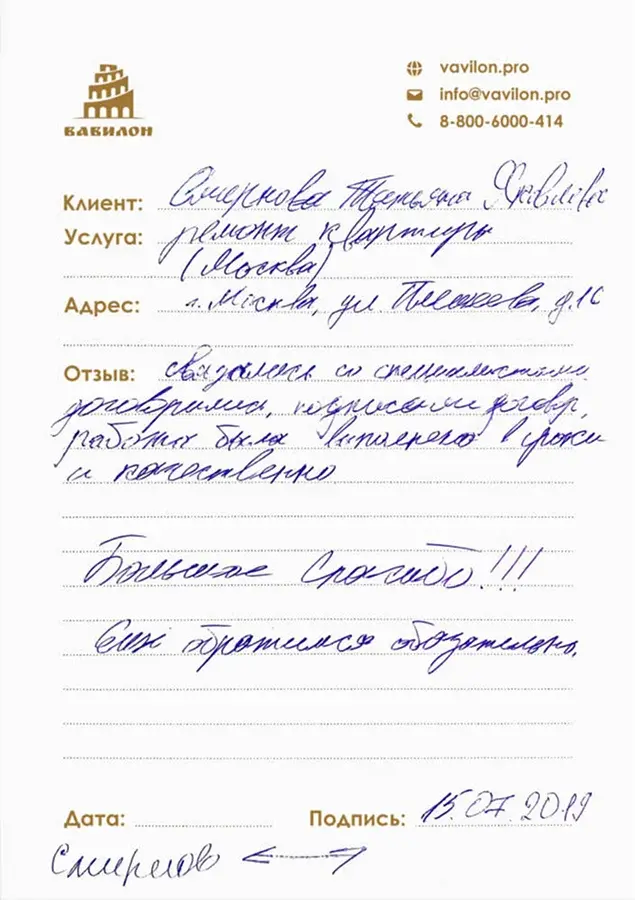 ВАВИЛОН
vavilon.pro
info@vavilon.pro
8-800-6000-414
Клиент: Смирнова Татьяна Яковлевна
Услуга: ремонт квартиры
(Москва)
Адрес: г. Москва, ул д.
Отзыв: связались со специалистами
договорились, подписали договор,
работа была выполнена в сроки
и качественно
Большое Спасибо!!!
Ещё обратимся обязательно.
Дата: Подпись: 15.07.2019
Смирнов